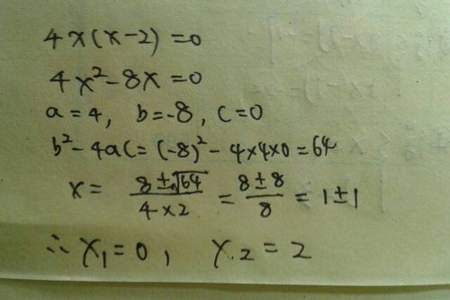 4x(x-2)=0
4x²-8x=0
a=4, b=-8, c=0
b²-4ac=(-8)²-4×4×0=64
x= (8±√64)/(4×2) = (8±8)/8 = 1±1
∴ x₁=0, x.₂=2